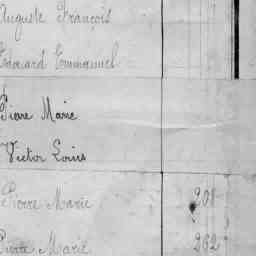 Auguste François
Edouard Emmanuel
Pierre Marie
Victor Louis
Pierre Marie 201
Pierre Marie 262